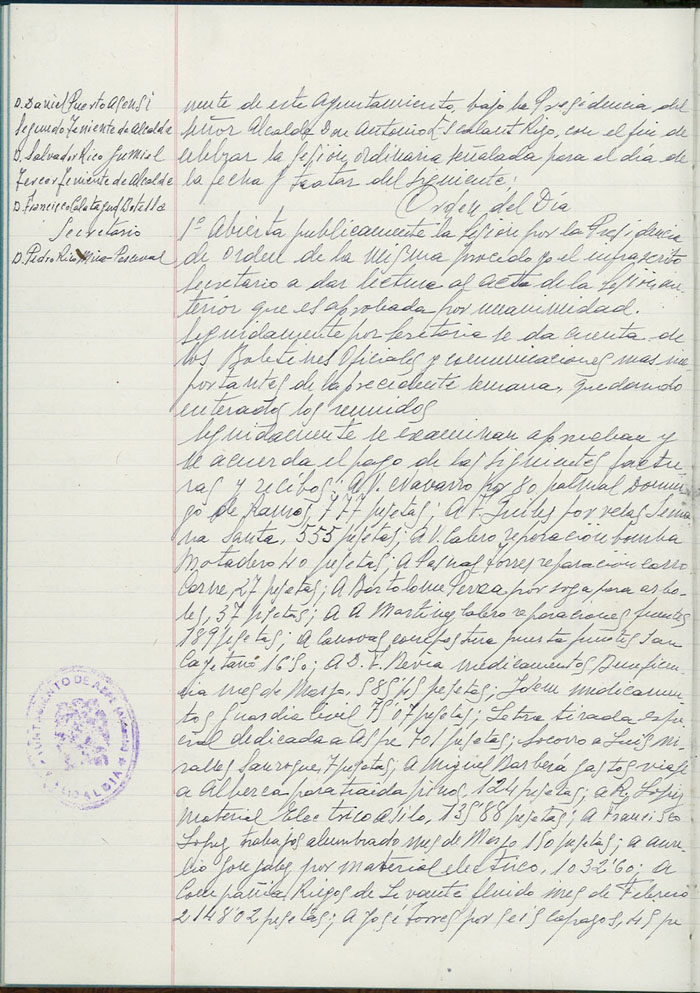 D. Daniel Puerto Asensi
Segundo Teniente de Alcalde
D. Salvador Rico Gumiel
Tercer Teniente de Alcalde
D. Francisco Calatayud Botella
Secretario
D. Pedro Rico Mira-Perceval
mente de este Ayuntamiento, bajo la Presidencia del
señor Alcalde Don Antonio Rizo, con el fin de
celebrar la sesión ordinaria señalada para el día de
la fecha y tratar del siguiente:
Orden del Día
1º Abierta publicamente la sesión por la Presidencia
de orden de la misma procedo yo el infrascrito
Secretario a dar lectura al acta de la sesión an-
terior que es aprobada por unanimidad.
Seguidamente por secretaria se da cuenta de
los Boletines Oficiales y comunicaciones mas im-
portantes de la precedente semana, quedando
enterados los reunidos
Seguidamente se examinan aprueban y
se acuerda el pago de las siguientes factu-
ras y recibos; a V. Navarro por 80 palmas Domin-
go de Ramos, 777 pesetas; A por velas Sema-
na Santa, 555 pesetas; A V. Calero reparación bomba
Matadero 40 pesetas; A Torres reparacion carro
carne, 27 pesetas; A Bartolome por soga para arbo-
les, 37 pesetas; A A Martinez Calero reparaciones fuentes
189 pesetas; A Canovas compostura puerta San
Cayetano 16'50; A D. F. medicamentos Beneficen-
cia mes de Marzo, 585'45 pesetas; Idem medicamen-
tos guardia civil 75'07 pesetas; tirada espe-
cial dedicada a Aspe 701 pesetas; Socorro a Luis Mi-
ralles 7 pesetas; A Miguel Barbera gastos viaje
a Alberca para traida pinos, 124 pesetas; a R. Lopez
material Electrico asilo, 135'88 pesetas; A Francisco
Lopez trabajos alumbrado mes de Marzo 150 pesetas; a Aure-
lio Gonzalez por material electrico, 1032'60; A
Compañia Riegos de Levante fluido mes de Febrero
2148'02 pesetas; A José Torres por seis capazos, 45 pe
AYUNTAMIENTO DE ASPE (Alicante)
ALCALDIA